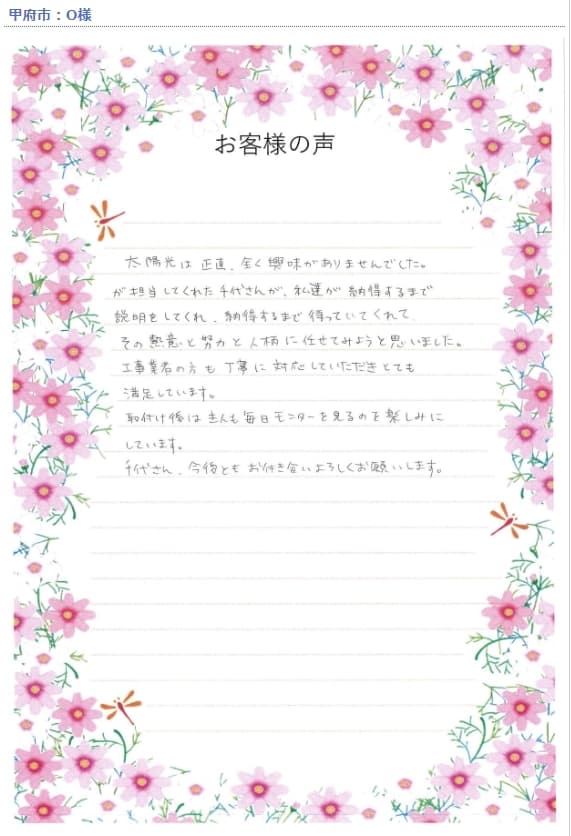 甲府市：O様
お客様の声
太陽光は正直、全く興味がありませんでした。
が担当してくれた千代さんが、私達が納得するまで
説明をしてくれ、納得するまで待っていてくれて、
その熱意と努力と人柄に任せてみようと思いました。
工事業者の方も丁寧に対応していただきとても
満足しています。
取付け後は主人も毎日モニターを見るのを楽しみに
しています。
千代さん、今後ともお付き合いよろしくお願いします。